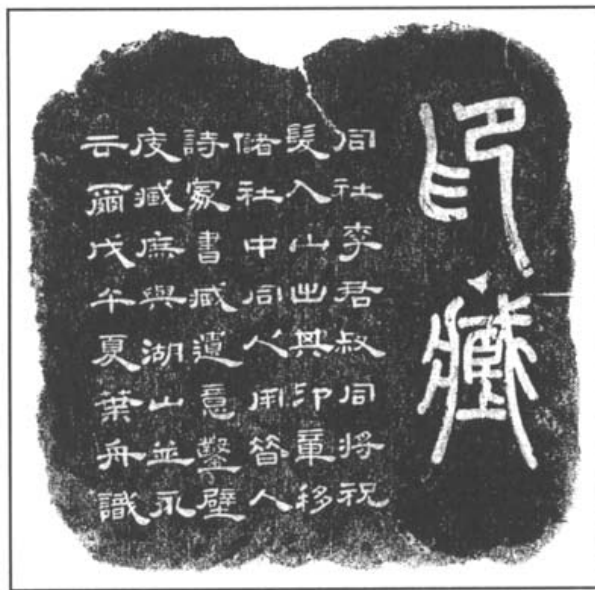 印藏
同社李君叔同將祝
髮入山出其印章移
儲社中同人用昔人
詩冢書藏遺意鑿壁
庋藏庶與湖山並永
云爾戊午夏葉舟識